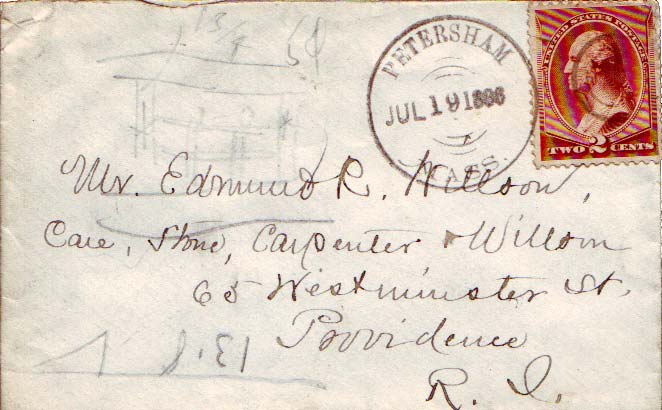 PETERSHAM
JUL 19 1886
MASS.
UNITED STATES POSTAGE
TWO 2 CENTS
Mr. Edmund R. Willson,
Care, Stone, Carpenter & Willson
65 Westminster St.
Providence
R. I.